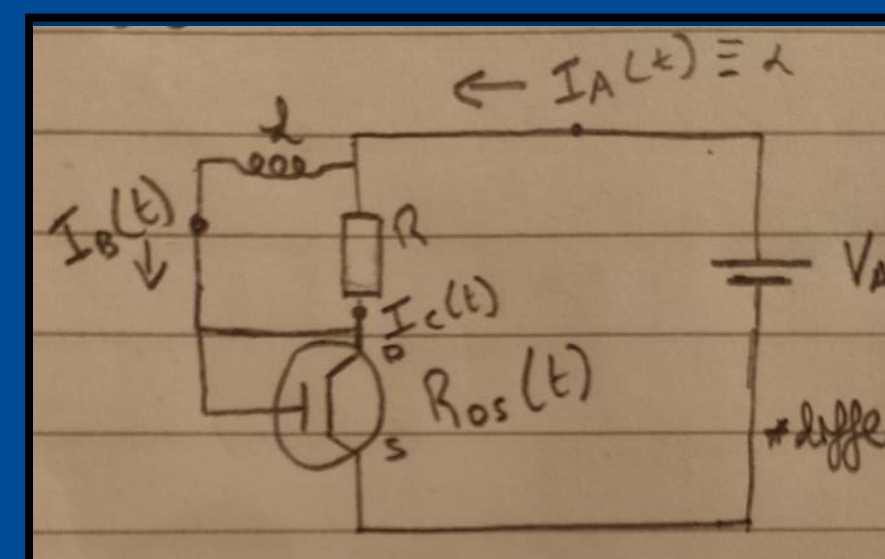 I_A(t) ≡ L
L
I_B(t)
R
I_C(t)
D
R_DS(t)
S
V_A
*diffe